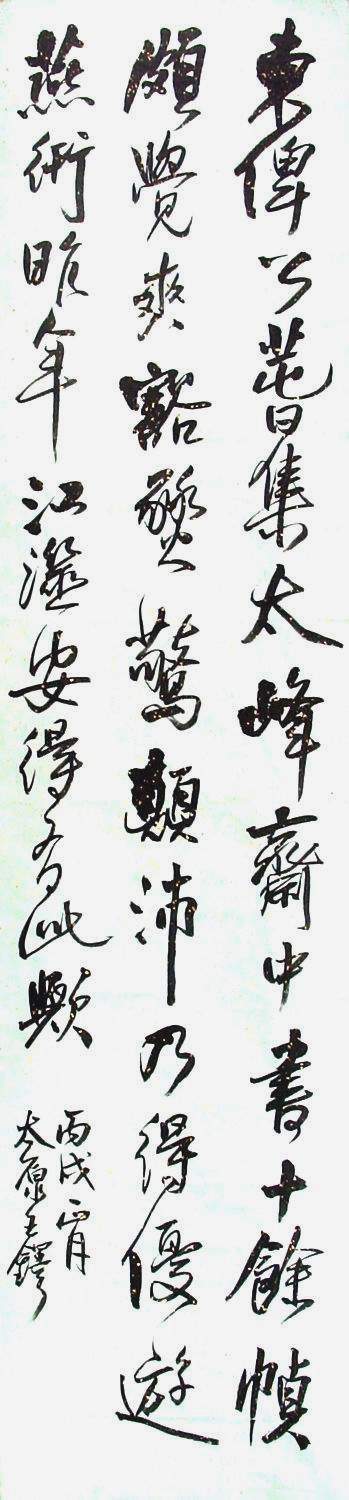 東俾公暮集太峰齋中書十餘幀
頗覺爽豁驚顛沛乃得優遊
燕術昨年江澨安得有此歟
丙戌正月
太原王鐸